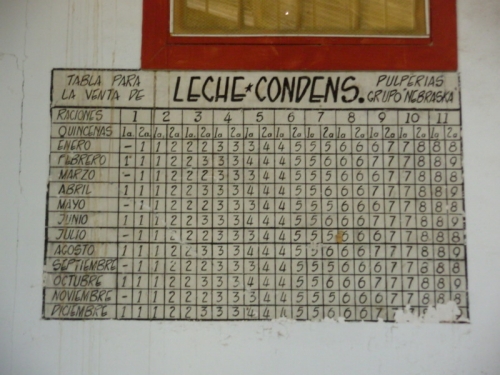 TABLA PARA LECHE*CONDENS. PULPERIAS
LA VENTA DE GRUPO "NEBRASKA"
RACIONES 1 2 3 4 5 6 7 8 9 10 11
QUINCENAS 1a 2a 1a 2a 1a 2a 1a 2a 1a 2a 1a 2a 1a 2a 1a 2a 1a 2a 1a 2a 1a 2a
ENERO - 1 1 2 2 2 3 3 3 4 4 5 5 5 6 6 6 7 7 8 8 8
FEBRERO 1 1 1 2 2 3 3 3 4 4 4 5 5 5 6 6 6 7 7 8 8 9
MARZO - 1 1 2 2 2 3 3 3 4 4 5 5 5 6 6 6 7 7 8 8 8
ABRIL 1 1 1 2 2 3 3 3 4 4 4 5 5 5 6 6 6 7 7 8 8 9
MAYO - 1 1 2 2 2 3 3 3 4 4 5 5 5 6 6 6 7 7 8 8 8
JUNIO 1 1 1 2 2 3 3 3 4 4 4 5 5 5 6 6 6 7 7 8 8 9
JULIO - 1 1 2 2 2 3 3 3 4 4 5 5 5 6 6 6 7 7 8 8 8
AGOSTO 1 1 1 2 2 3 3 3 4 4 4 5 5 5 6 6 6 7 7 8 8 9
SEPTIEMBRE - 1 1 2 2 2 3 3 3 4 4 5 5 5 6 6 6 7 7 8 8 8
OCTUBRE 1 1 1 2 2 3 3 3 4 4 4 5 5 5 6 6 6 7 7 8 8 9
NOVIEMBRE - 1 1 2 2 2 3 3 3 4 4 5 5 5 6 6 6 7 7 8 8 8
DICIEMBRE 1 1 1 2 2 3 3 3 4 4 4 5 5 5 6 6 6 7 7